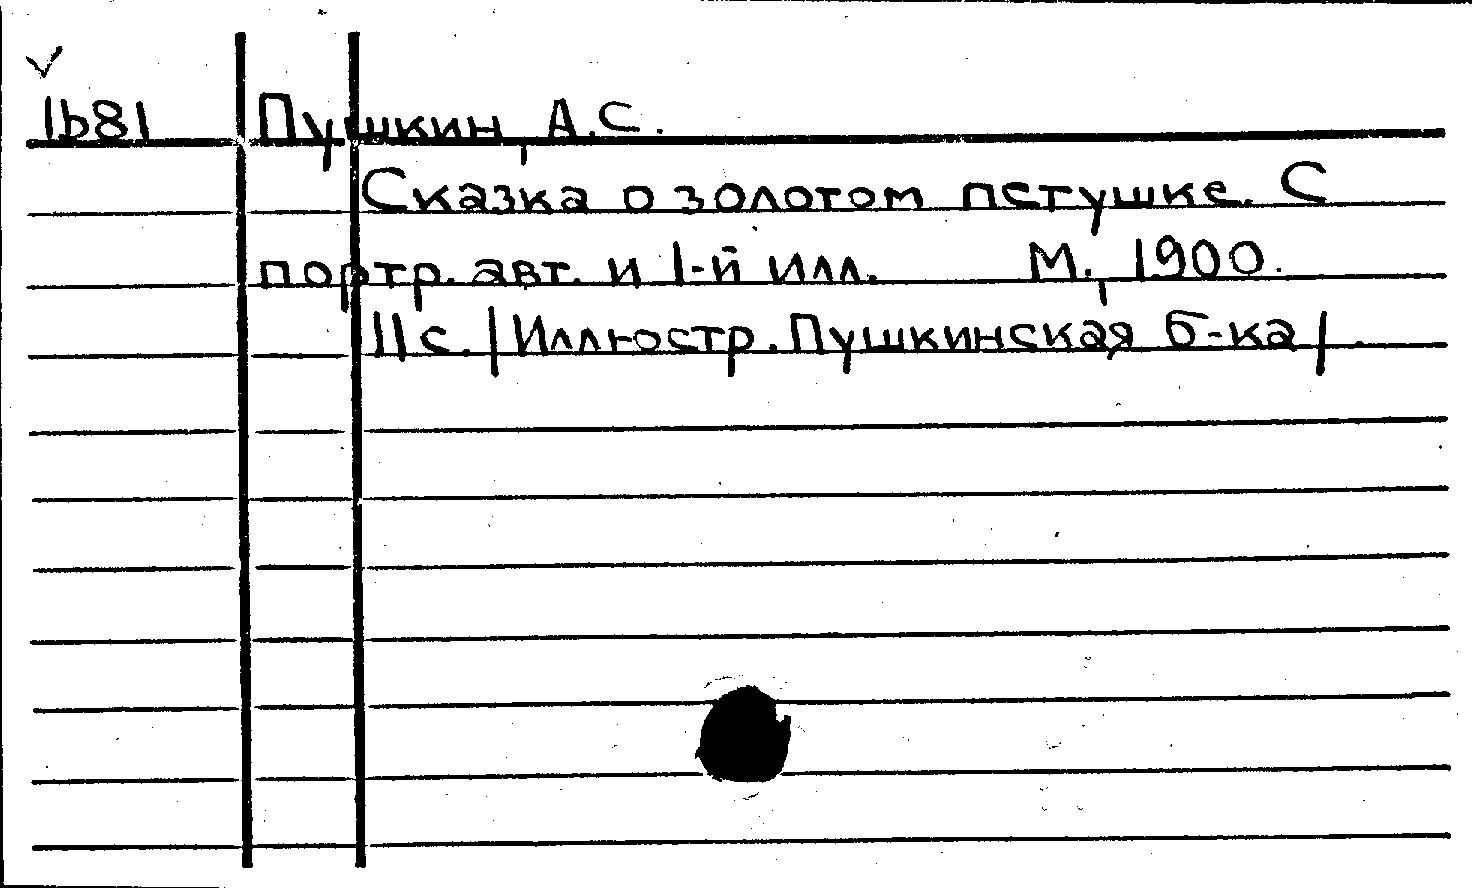 1681 Пушкин, А.С.
Сказка о золотом петушке. С
портр. авт. и 1-й илл. М., 1900.
11с. /Иллюстр. Пушкинская б-ка/.